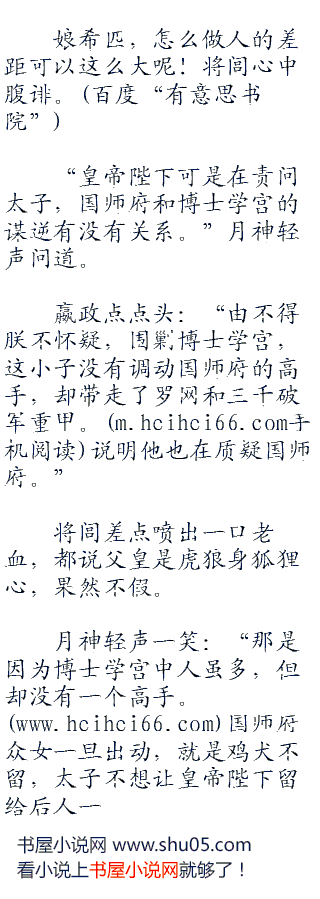 娘希匹，怎么做人的差
距可以这么大呢！将闾心中
腹诽。(百度“有意思书
院”)
“皇帝陛下可是在责问
太子，国师府和博士学宫的
谋逆有没有关系。”月神轻
声问道。
嬴政点点头：“由不得
朕不怀疑，围剿博士学宫，
这小子没有调动国师府的高
手，却带走了罗网和三千破
军重甲。(m.hcihci66.com手
机阅读)说明他也在质疑国师
府。”
将闾差点喷出一口老
血，都说父皇是虎狼身狐狸
心，果然不假。
月神轻声一笑：“那是
因为博士学宫中人虽多，但
却没有一个高手。
(www.hcihci66.com)国师府
众女一旦出动，就是鸡犬不
留，太子不想让皇帝陛下留
给后人一
书屋小说网 www.shu05.com
看小说上书屋小说网就够了！